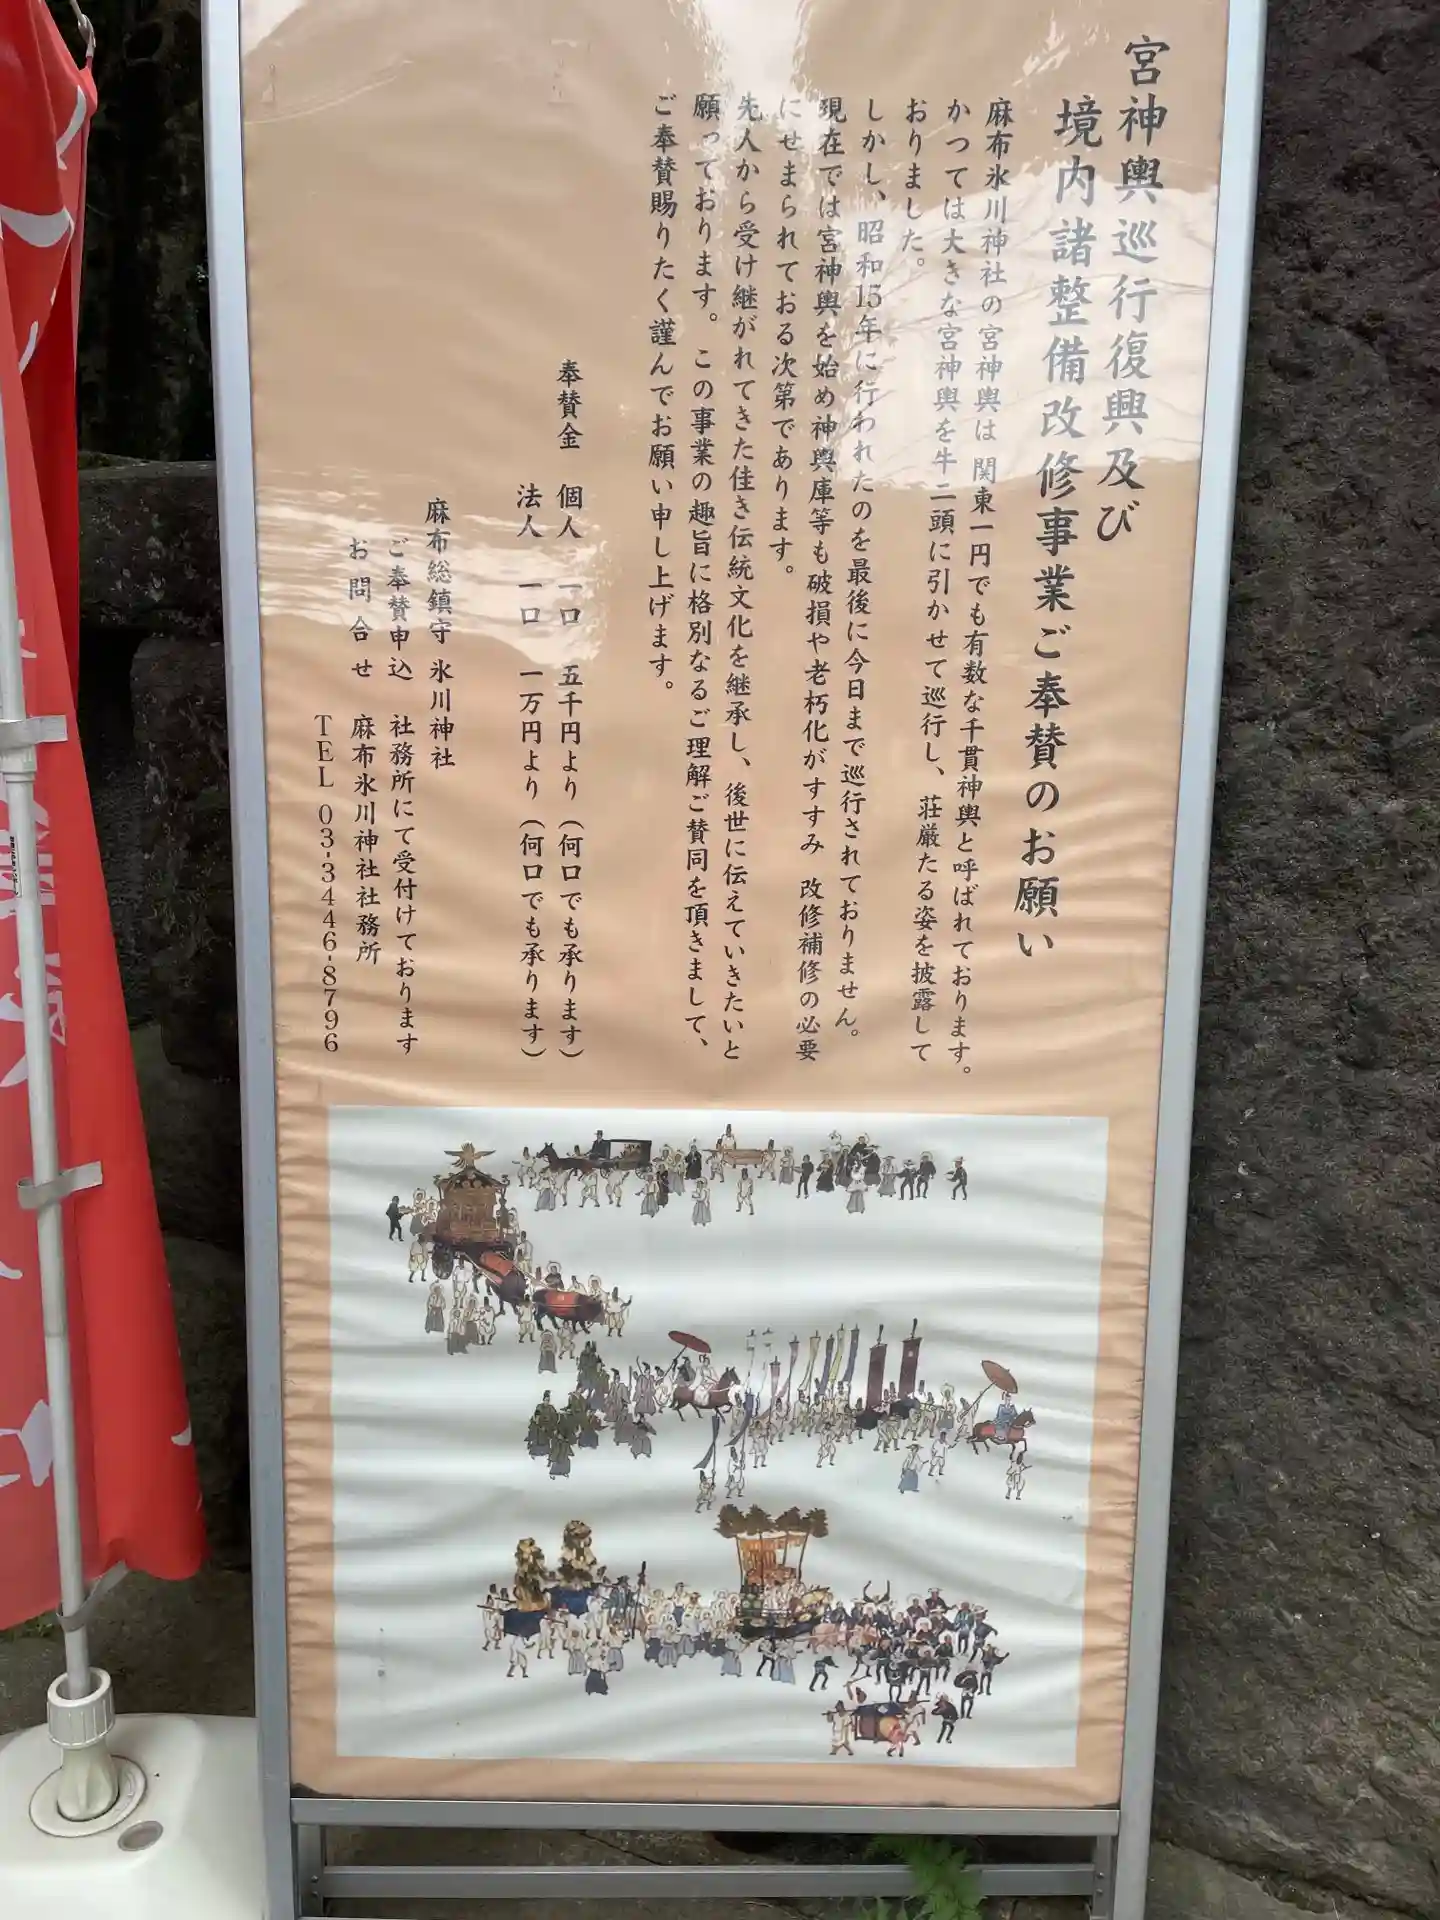 宮神輿巡行復興及び
境内諸整備改修事業ご奉賛のお願い
麻布氷川神社の宮神輿は 関東一円でも有数な千貫神輿と呼ばれております。
かつては大きな宮神輿を牛二頭に引かせて巡行し、荘厳たる姿を披露して
おりました。
しかし、昭和15年に行われたのを最後に今日まで巡行されておりません。
現在では宮神輿を始め神輿庫等も破損や老朽化がすすみ 改修補修の必要
にせまられておる次第であります。
先人から受け継がれてきた佳き伝統文化を継承し、後世に伝えていきたいと
願っております。この事業の趣旨に格別なるご理解ご賛同を頂きまして、
ご奉賛賜りたく謹んでお願い申し上げます。
奉賛金 個人 一口 五千円より（何口でも承ります）
法人 一口 一万円より（何口でも承ります）
麻布総鎮守 氷川神社
ご奉賛申込 社務所にて受付けております
お問合せ 麻布氷川神社社務所
TEL 03-3446-8796